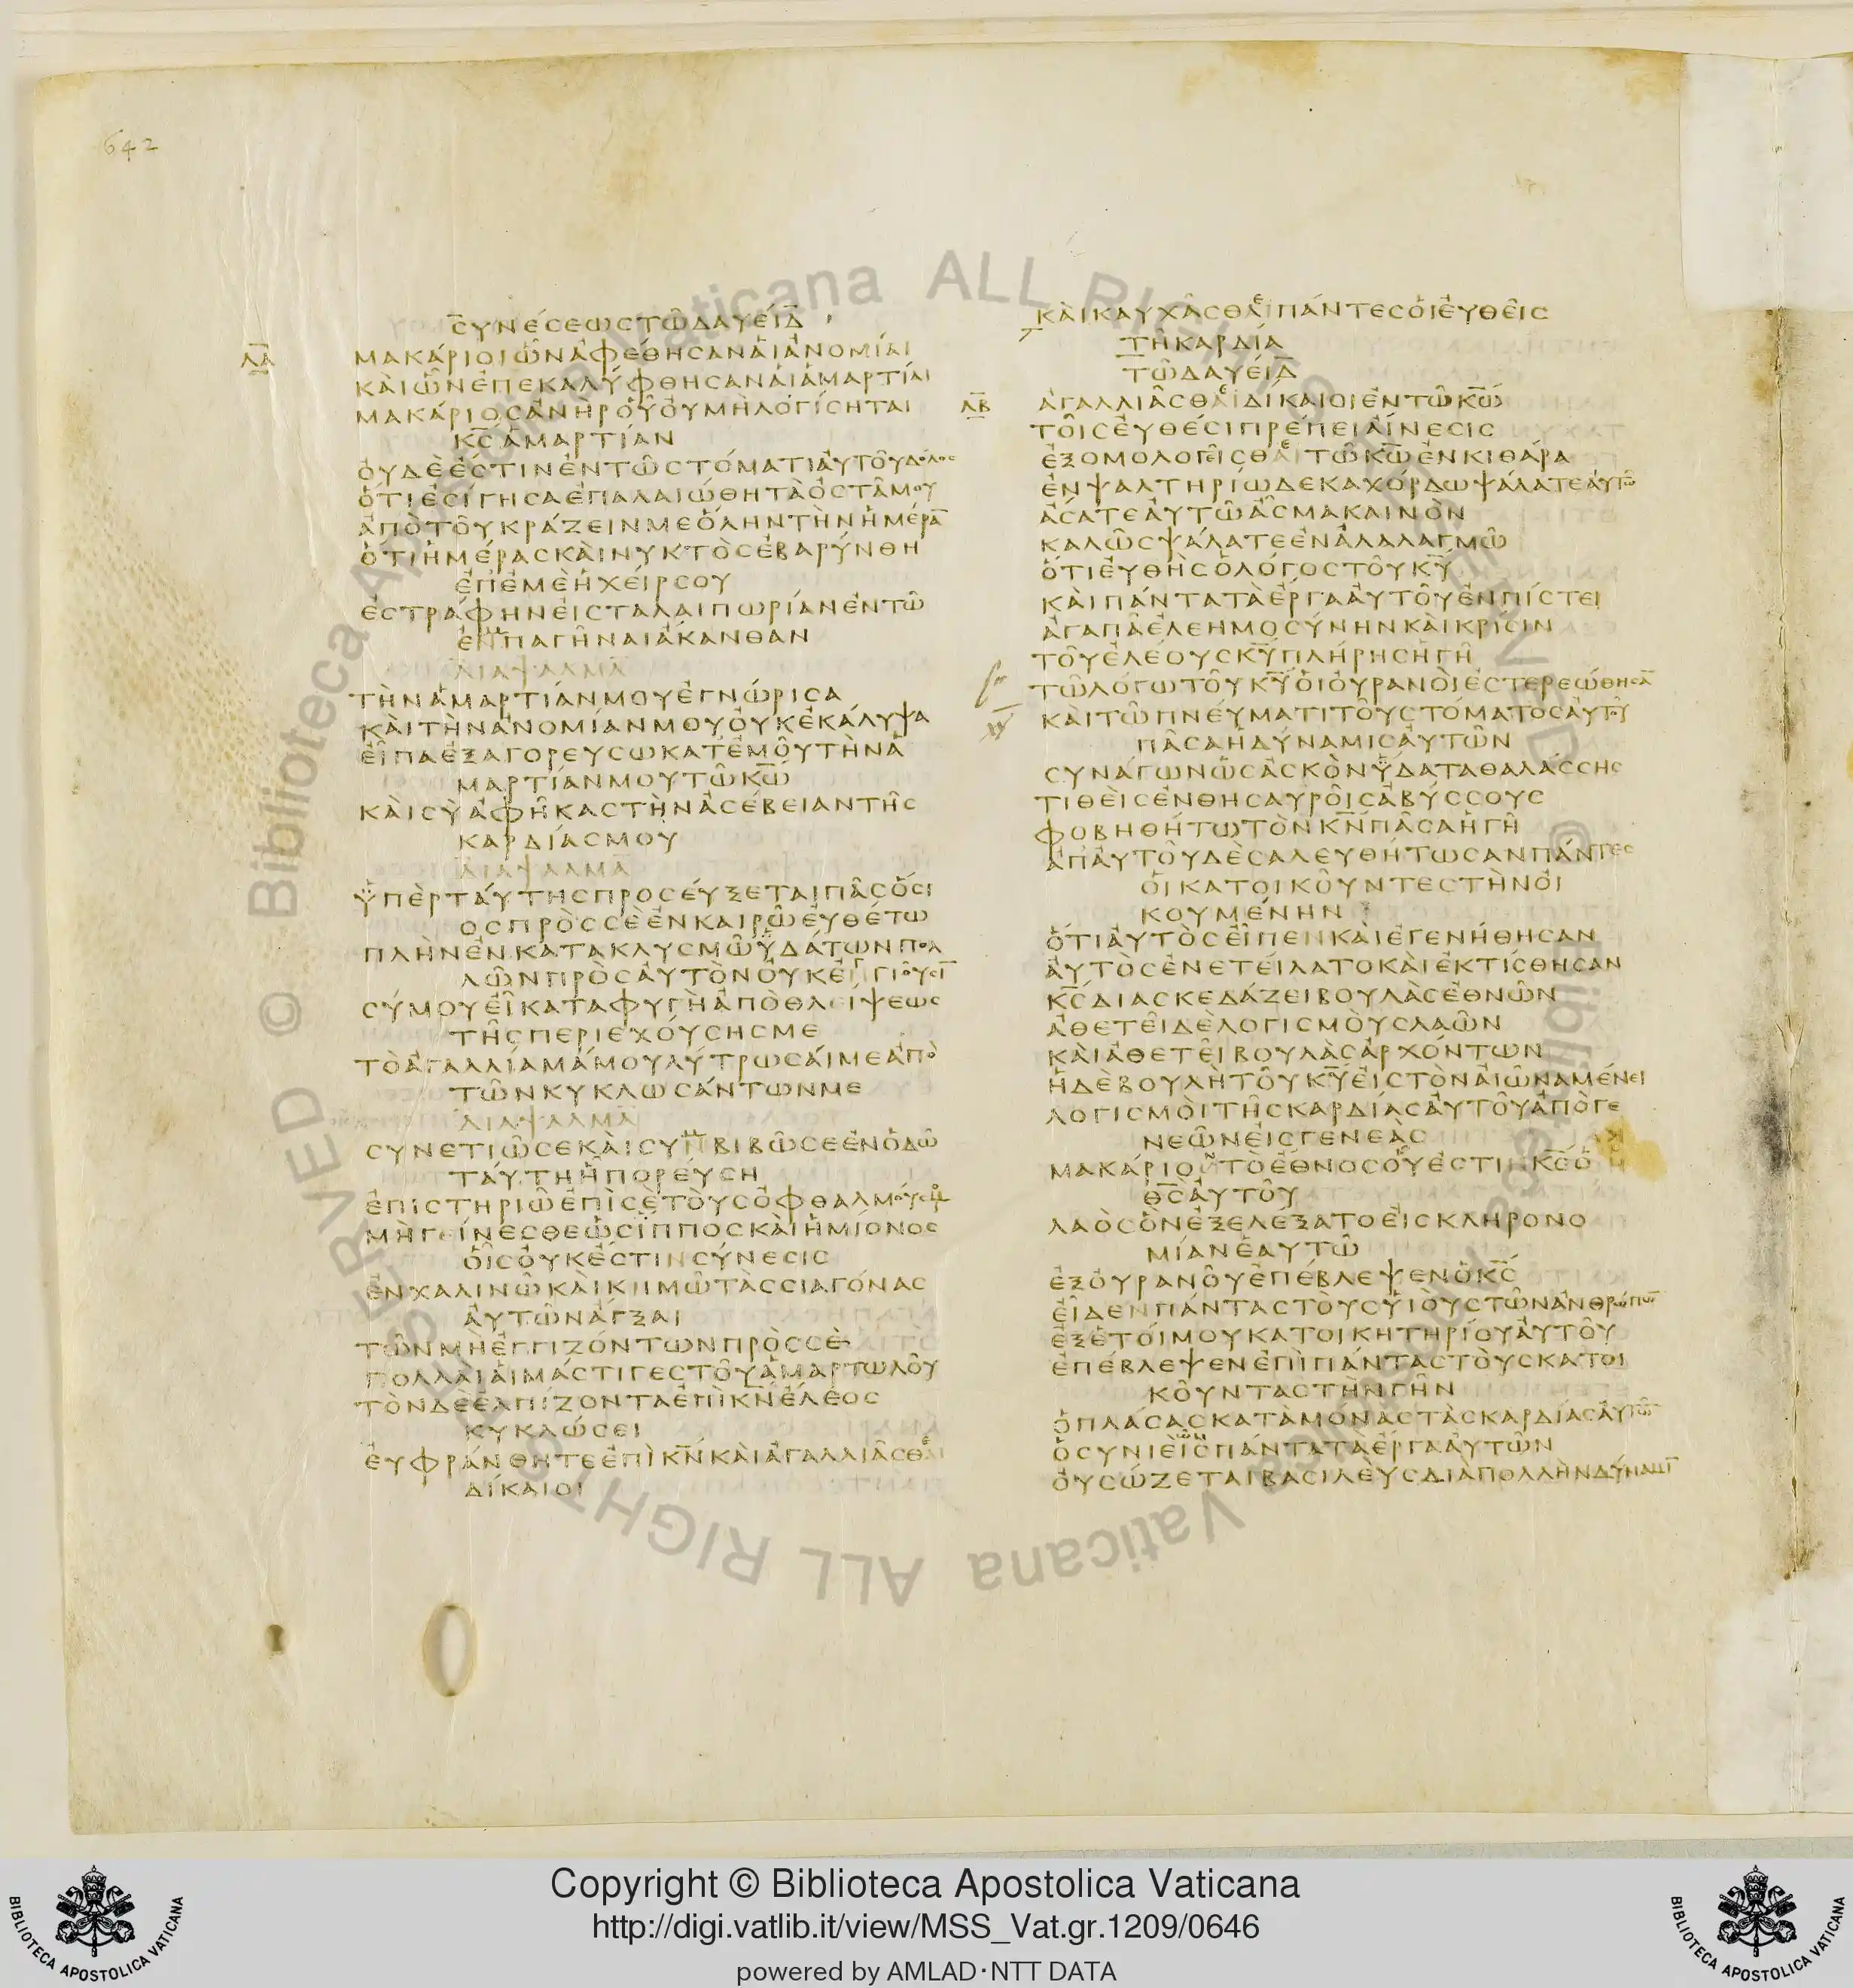 642
ϹΥΝΈϹΕΩϹΤΩ͂ΔΑΥΕΊΔ̅
Λ̅Α̅
ΜΑΚΆΡΙΟΙὯΝἈΦΈΘΗϹΑΝἉΙἈΝΟΜΊΑΙ
ΚΑῚὯΝἘΠΕΚΑΛΎΦΘΗϹΑΝἉΙἉΜΑΡΤΊΑΙ
ΜΑΚΆΡΙΟϹἈΝῊΡΟὟΟΥΜῊΛΟΓΊϹΗΤΑΙ
Κ̅Ϲ̅ἉΜΑΡΤΊΑΝ
ΟΥΔῈἘϹΤΙΝἘΝΤΩ͂ϹΤΌΜΑΤΙἈΥΤΟΥ͂ΔΌΛΟϹ
ὍΤΙἘϹΊΓΗϹΑἘΠΑΛΑΙΏΘΗΤᾺὈϹΤΑ͂ΜΟΥ
ἈΠῸΤΟΥ͂ΚΡΆΖΕΙΝΜΕὍΛΗΝΤῊΝἩΜΈΡΑ̅
ὍΤΙἩΜΈΡΑϹΚΑῚΝΥΚΤῸϹἘΒΑΡΎΝΘΗ
ἘΠἘΜῈἩΧΕΊΡϹΟΥ
ἘϹΤΡΆΦΗΝἘΙϹΤΑΛΑΙΠΩΡΊΑΝἘΝΤΩ͂
ἘΜΠΑΓΗ͂ΝΑΙἈΚΑΝΘΑΝ
ΔΙΑΨΑΛΜΑ
ΤῊΝἉΜΑΡΤΊΑΝΜΟΥἘΓΝΏΡΙϹΑ
ΚΑῚΤῊΝἈΝΟΜΊΑΝΜΟΥὈΥΚἘΚΆΛΥΨΑ
ἘΙ͂ΠΑἘΞΑΓΟΡΕΥϹΩΚΑΤἘΜΟΥ͂ΤῊΝἉ
ΜΑΡΤΊΑΝΜΟΥΤΩ͂Κ̅Ω̅
ΚΑῚϹῪἈΦΗ͂ΚΑϹΤῊΝἈϹΈΒΕΙΑΝΤΗ͂Ϲ
ΚΑΡΔΊΑϹΜΟΥ
ΔΙΑΨΑΛΜΑ
ὙΠῈΡΤΆΥΤΗϹΠΡΟϹΕΎΞΕΤΑΙΠΑ͂ϹὍϹΙ
ΟϹΠΡῸϹϹῈἘΝΚΑΙΡΩ͂ΕΥΘΈΤΩ
ΠΛῊΝἘΝΚΑΤΑΚΛΥϹΜΩ͂ὙΔΆΤΩΝΠΟΛ
ΛΩ͂ΝΠΡῸϹἈΥΤῸΝὈΥΚἘΓΓΙΟΥ͂ϹΙ̅
ϹΎΜΟΥΕΙ͂ΚΑΤΑΦΥΓῊἈΠῸΘΛΕΊΨΕΩϹ
ΤΗ͂ϹΠΕΡΙΕΧΟΎϹΗϹΜΕ
ΤῸἈΓΑΛΛΊΑΜΆΜΟΥΛΎΤΡΩϹΑΊΜΕἈΠῸ
ΤΩ͂ΝΚΥΚΛΩϹΆΝΤΩΝΜΕ
ΔΙΑΨΑΛΜΑ
ϹΥΝΕΤΙΩ͂ϹΕΚΑῚϹΥΜΒΙΒΩ͂ϹΕἘΝὉΔΩ͂
ΤΑΎΤΗἩΠΟΡΕΎϹΗ
ἘΠΙϹΤΗΡΙΩ͂ἘΠῚϹῈΤΟῪϹὈΦΘΑΛΜΟΎϹΜΟΥ
ΜῊΓΕΊΝΕϹΘΕὩϹἽΠΠΟϹΚΑῚἩΜΊΟΝΟϹ
ὉΙ͂ϹὈΥΚἘϹΤΙΝϹΎΝΕϹΙϹ
ἘΝΧΑΛΙΝΩ͂ΚΑῚΚΗΜΩ͂ΤᾺϹϹΙΑΓΌΝΑϹ
ἈΥΤΩ͂ΝἈΓΞΑΙ
ΤΩ͂ΝΜῊἘΓΓΙΖΌΝΤΩΝΠΡῸϹϹῈ
ΠΟΛΛΑῚἉΙΜΆϹΤΙΓΕϹΤΟΥ͂ἉΜΑΡΤΩΛΟΥ͂
ΤῸΝΔῈἘΛΠΊΖΟΝΤΑἘΠῚΚ̅Ν̅ἘΛΕΟϹ
ΚΥΚΛΏϹΕΙ
ἘΥΦΡΆΝΘΗΤΕἘΠῚΚ̅Ν̅ΚΑῚἈΓΑΛΛΙΑ͂ϹΘΕ
ΔΊΚΑΙΟΙ
ΚΑῚΚΑΥΧΑ͂ϹΘΕΠΆΝΤΕϹὉΙἘΥΘΕΙ͂Ϲ
ΤΗ͂ΚΑΡΔΊΑ
ΤΩ͂ΔΑΥΕΊΔ̅
Λ̅Β̅
ἈΓΑΛΛΙΑ͂ϹΘΕΔΊΚΑΙΟΙἘΝΤΩ͂Κ̅Ω̅
ΤΟΙ͂ϹἘΥΘΈϹΙΠΡΈΠΕΙἈΊΝΕϹΙϹ
ἘΞΟΜΟΛΟΓΕΙ͂ϹΘΕΤΩ͂Κ̅Ω̅ἘΝΚΙΘΆΡΑ
ἘΝΨΑΛΤΗΡΊΩΔΕΚΑΧΌΡΔΩΨΆΛΑΤΕἈΥΤΩ͂
ἈϹΑΤΕἈΥΤΩ͂ἈϹΜΑΚΑΙΝῸΝ
ΚΑΛΩ͂ϹΨΆΛΑΤΕἘΝἈΛΑΛΑΓΜΩ͂
ὍΤΙἘΥΘῊϹὉΛΌΓΟϹΤΟΥ͂Κ̅Υ̅
ΚΑῚΠΆΝΤΑΤᾺἘΡΓΑἈΥΤΟΥ͂ἘΝΠΊϹΤΕΙ
ἈΓΑΠΑ͂ἘΛΕΗΜΟϹΎΝΗΝΚΑῚΚΡΊϹΙΝ
ΤΟΥ͂ἘΛΈΟΥϹΚ̅Υ̅ΠΛΉΡΗϹἩΓΗ͂
ΤΩ͂ΛΌΓΩΤΟΥ͂Κ̅Υ̅ὉΙὈΥΡΑΝΟῚἘϹΤΕΡΕΏΘΗϹΑ̅
ΚΑῚΤΩ͂ΠΝΕΎΜΑΤΙΤΟΥ͂ϹΤΌΜΑΤΟϹἈΥΤΟΥ͂
ΠΑ͂ϹΑἩΔΎΝΑΜΙϹἈΥΤΩ͂Ν
ϹΥΝΆΓΩΝὩϹἈϹΚῸΝὝΔΑΤΑΘΑΛΆϹϹΗϹ
ΤΙΘΕῚϹἘΝΘΗϹΑΥΡΟΙ͂ϹἈΒΎϹϹΟΥϹ
ΦΟΒΗΘΉΤΩΤῸΝΚ̅Ν̅ΠΑ͂ϹΑἩΓΗ͂
ἈΠἈΥΤΟΥ͂ΔῈϹΑΛΕΥΘΉΤΩϹΑΝΠΆΝΤΕϹ
ὉΙΚΑΤΟΙΚΟΥ͂ΝΤΕϹΤῊΝὈΙ
ΚΟΥΜΈΝΗΝ
ὍΤΙἈΥΤῸϹἘΙ͂ΠΕΝΚΑῚἘΓΕΝΉΘΗϹΑΝ
ἈΥΤῸϹἘΝΕΤΕΊΛΑΤΟΚΑῚἘΚΤΊϹΘΗϹΑΝ
Κ̅Ϲ̅ΔΙΑϹΚΕΔΆΖΕΙΒΟΥΛᾺϹἘΘΝΩ͂Ν
ἈΘΕΤΕΙ͂ΔῈΛΟΓΙϹΜΟῪϹΛΑΩ͂Ν
ΚΑῚἈΘΕΤΕΙ͂ΒΟΥΛᾺϹἈΡΧΌΝΤΩΝ
ἩΔῈΒΟΥΛῊΤΟΥ͂Κ̅Υ̅ἘΙϹΤῸΝἈΙΩ͂ΝΑΜΈΝΕΙ
ΛΟΓΙϹΜΟῚΤΗ͂ϹΚΑΡΔΊΑϹἈΥΤΟΥ͂ἈΠῸΓΕ
ΝΕΩ͂ΝἘΙϹΓΕΝΕᾺϹ
ΜΑΚΆΡΙΟϹΤῸἘΘΝΟϹΟὟἘϹΤΙΝΚ̅Ϲ̅Ὁ
Θ̅Ϲ̅ἈΥΤΟΥ͂
ΛΑῸϹὋΝἘΞΕΛΈΞΑΤΟἘΙϹΚΛΗΡΟΝΟ
ΜΊΑΝἙΑΥΤΩ͂
ἘΞὈΥΡΑΝΟΥ͂ἘΠΈΒΛΕΨΕΝὉΚ̅Ϲ̅
ἘΙ͂ΔΕΝΠΆΝΤΑϹΤΟῪϹὙΙΟῪϹΤΩ͂ΝἈΝΘΡΏΠΩ̅
ἘΞἙΤΟΊΜΟΥΚΑΤΟΙΚΗΤΗΡΊΟΥἈΥΤΟΥ͂
ἘΠΈΒΛΕΨΕΝἘΠῚΠΆΝΤΑϹΤΟῪϹΚΑΤΟΙ
ΚΟΥ͂ΝΤΑϹΤῊΝΓΗ͂Ν
ὉΠΛΆϹΑϹΚΑΤᾺΜΌΝΑϹΤᾺϹΚΑΡΔΊΑϹἈΥΤΩ͂
ὉϹΥΝΙΕῚϹΠΆΝΤΑΤᾺἘΡΓΑἈΥΤΩ͂Ν
ὈΥϹΏΖΕΤΑΙΒΑϹΙΛΕῪϹΔΙᾺΠΟΛΛῊΝΔΎΝΑΜΙ̅
© Biblioteca Apostolica Vaticana ALL RIGHTS RESERVED
Copyright © Biblioteca Apostolica Vaticana
http://digi.vatlib.it/view/MSS_Vat.gr.1209/0646
powered by AMLAD·NTT DATA
BIBLIOTECA APOSTOLICA VATICANA
BIBLIOTECA APOSTOLICA VATICANA